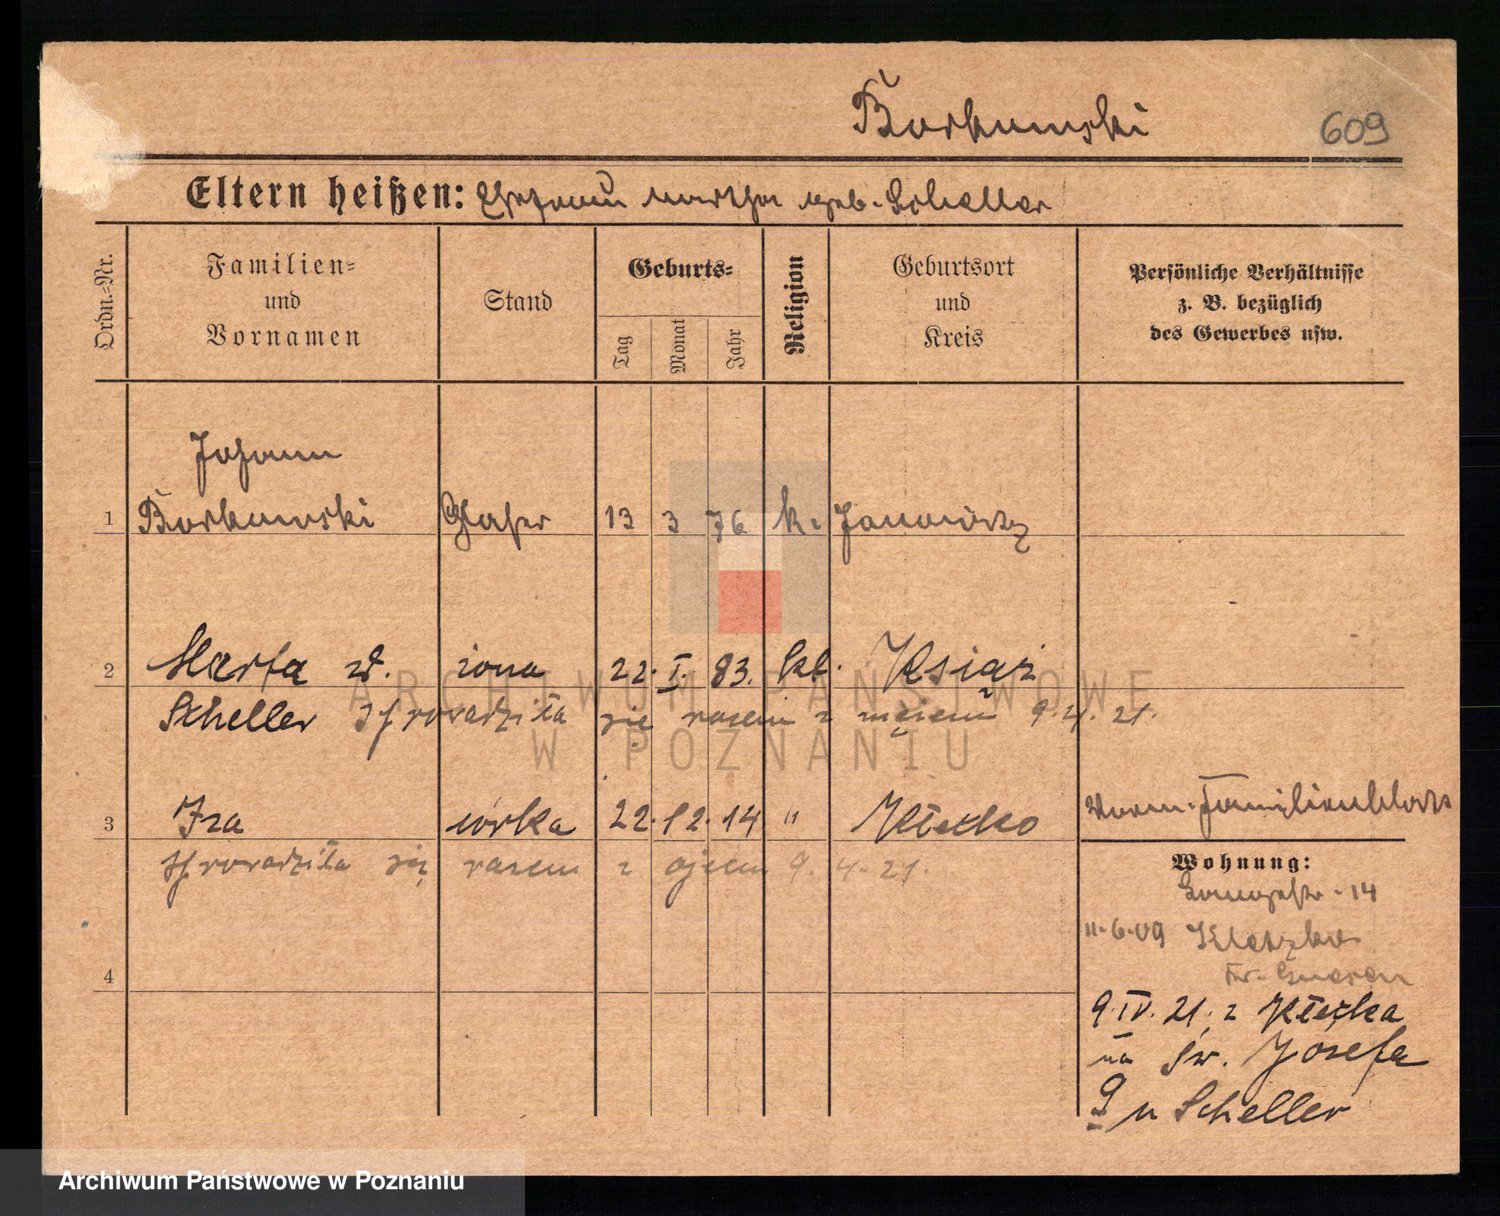 Borkowski
609
Eltern heißen: Ehefrau Martha geb. Scheller
Ordn.=Nr.
Familien= und Vornamen
Stand
Geburts=
Tag
Monat
Jahr
Religion
Geburtsort und Kreis
Persönliche Verhältnisse
z. B. bezüglich
des Gewerbes usw.
Johann
1 Borkowski Glaser 13 3 76 k. Janowitz
2 Marta zd. żona 22. I. 83. kat. Książ
Scheller sprowadziła się razem z mężem 9.4.21.
3 Iza córka 22. 12. 14 " Kłecko
sprowadziła się razem z ojcem 9.4.21.
4
Familienblatt
Wohnung:
14
11.6.09 Kletzko
Kr. Gnesen
9.IV.21. z Kłecka
na Św. Józefa
9 u Scheller
ARCHIWUM PAŃSTWOWE
W POZNANIU
Archiwum Państwowe w Poznaniu